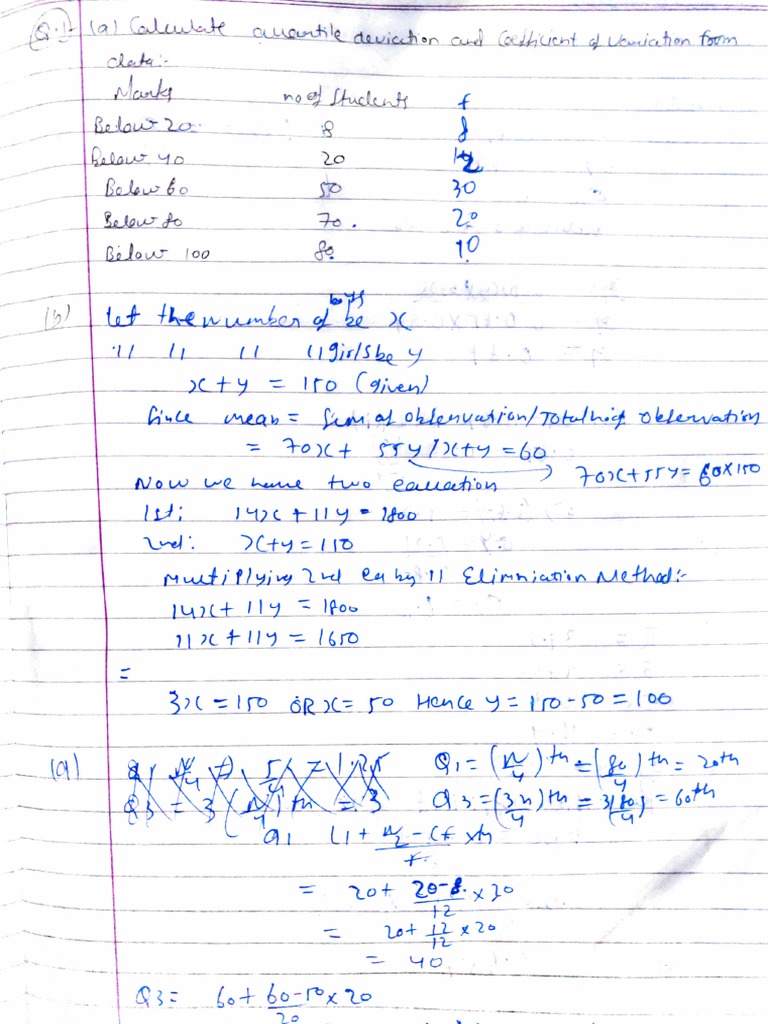 Q.1 (a) Calculate quartile deviation and Coefficient of variation form
data:-
Marks no of Students f
Below 20 8 8
Below 40 20 12
Below 60 50 30
Below 80 70 20
Below 100 80 10
(b) let the number of boys be x
" " " " girls be y
x+y = 150 (given)
Since mean = Sum of observation/Total no of observation
= 70x + 55y/x+y = 60
70x+55y = 60x150
Now we have two equation
1st: 14x + 11y = 1800
2nd: x+y = 150
Multiplying 2nd eq by 11 Elimniation Method:-
14x + 11y = 1800
11x + 11y = 1650
=
3x = 150 OR x = 50 Hence y = 150-50 = 100
(a) Q1 = (n/4)th = (80/4)th = 20th
Q3 = (3n/4)th = 3(80/4) = 60th
Q1 L1 + n/2 - Cf xh
f
= 20 + 20-8/12 x 20
= 20 + 12/12 x 20
= 40
Q3 = 60 + 60-50 x 20
20